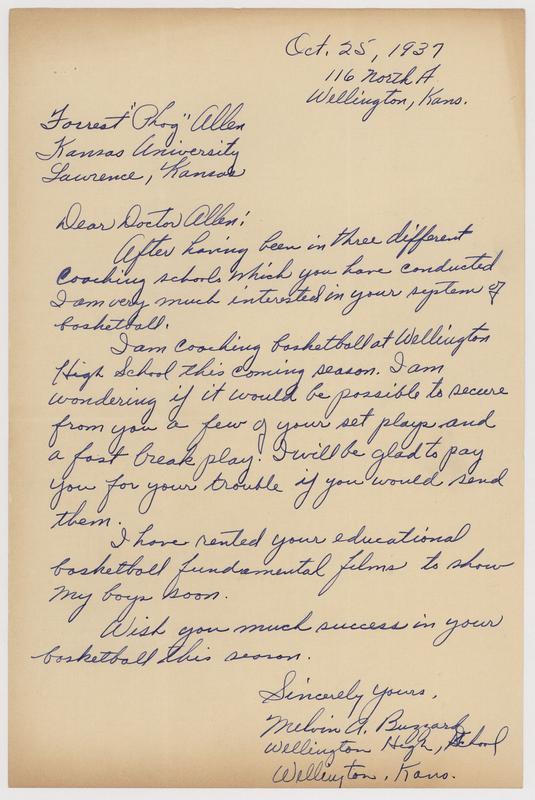 Oct. 25, 1937
116 North A
Wellington, Kans.
Forrest "Phog" Allen
Kansas University
Lawrence, Kansas
Dear Doctor Allen:
After having been in three different
coaching schools which you have conducted
I am very much interested in your system of
basketball.
I am coaching basketball at Wellington
High School this coming season. I am
wondering if it would be possible to secure
from you a few of your set plays and
a fast break play. I will be glad to pay
you for your trouble if you would send
them.
I have rented your educational
basketball fundamental films to show
my boys soon.
Wish you much success in your
basketball this season.
Sincerely yours,
Melvin A. Buzzard
Wellington High, School
Wellington, Kans.